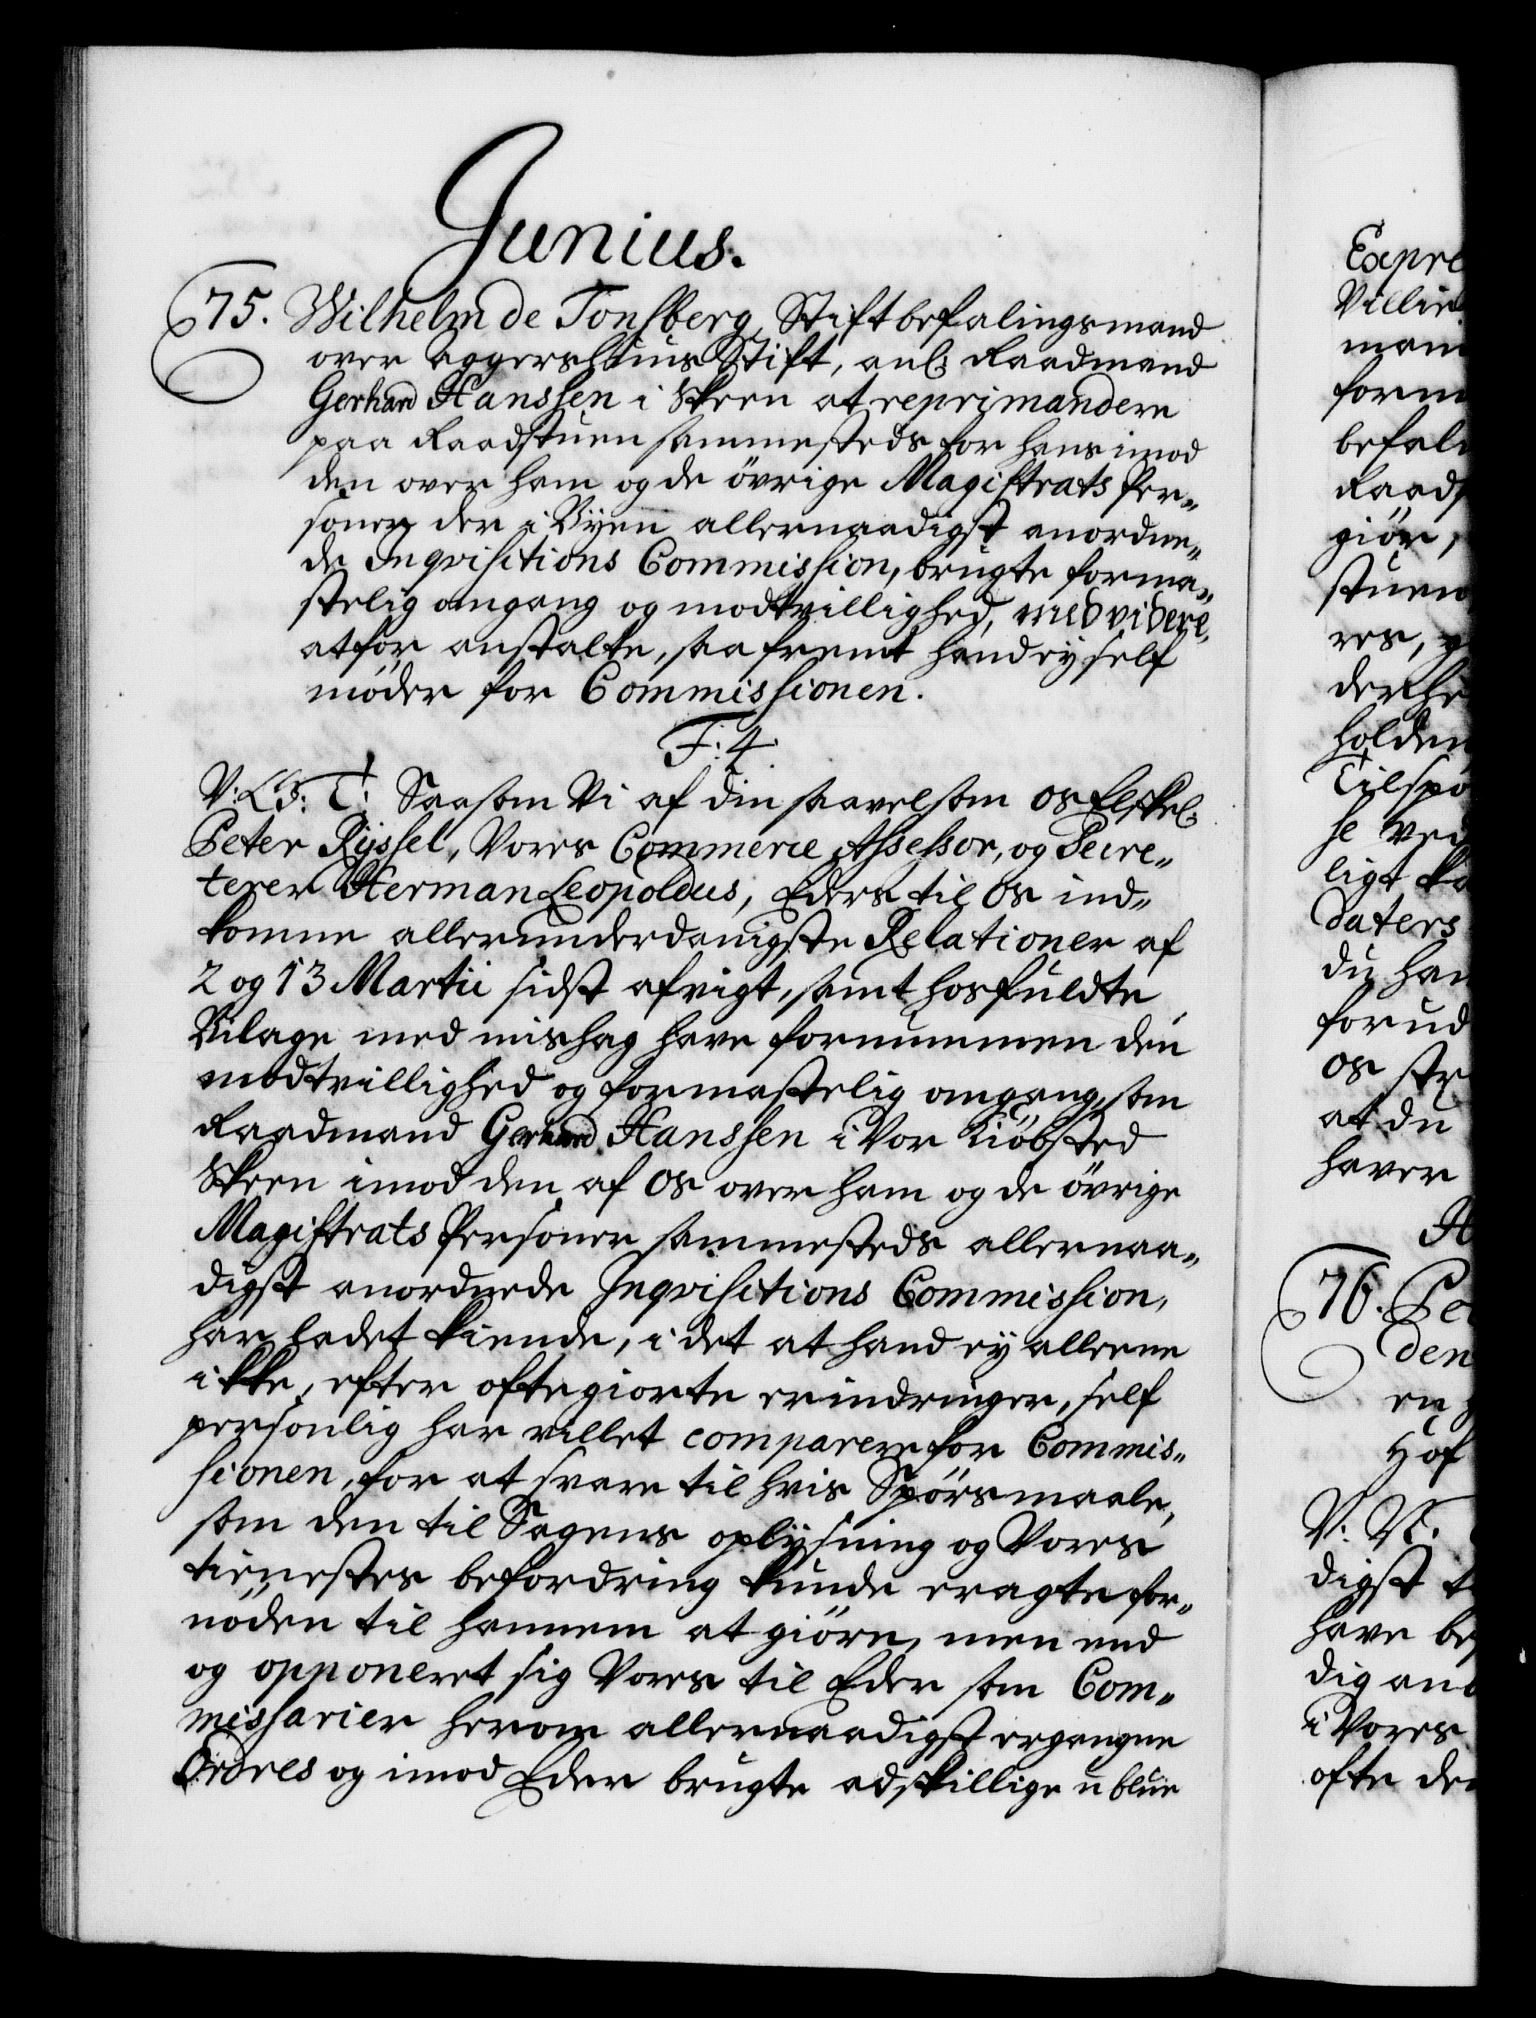 Junius.
75. Wilhelm de Tonsberg, Stiftbefalingsmand
over Aggershuus Stift, anl: Raadmand
Gerhard Hanssen i Skeen at reprimandere
paa Raadstuen sammesteds for hans imod
den over ham og de övrige Magistrats Per„
soner der i Byen allernaadigst anordne„
de Inqvisitions Commission, brugte forma„
stelig omgang og modtvillighed, med videre
at for anstalte, saafremt hand ey self
möder for Commissionen.
F: 4.
V: G: T: Saasom Vi af din saavelsom os Elskel:
Peter Rÿssel, Vores Commerce Assessor, og Secre„
terer Herman Leopoldus, Eders til Os ind„
komne allerunderdanigste Relationer af
2 og 13 Martii sidst afvigt, samt hosfuldte
Bilage med mishag have fornummen den
modtvillighed og formastelig omgang, som
Raadmand Gerhard Hanssen i Vor Kiöbsted
Skeen imod den af Os over ham og de övrige
Magistrats Personer sammesteds allernaa„
digst anordnede Inqvisitions Commission,
har ladet kiende, i det at hand ey alleene
ikke, efter ofte giorte erindringer, self
personlig har villet comparere for Commis„
sionen, for at svare til hvis Spörsmaale,
som den til Sagens oplÿsning og Vores
tienestes befordring kunde eragte for„
nöden til hannem at giöre, men end
og opponeret sig Vores til Eder som Com„
missarier herom allernaadigst ergangne
Ordres og imod Eder brugte adskillige u blue
Expre
Villie
mand
form
befal
Raads
giör,
stuen
res, 
der hi
holden
Tilspö
se ved
ligt ka
daters
du han
forud
os str
at du
haver
76. Pe
den
en
Hof
V: V:
digst t
have be
dig an
i Vores
ofte de